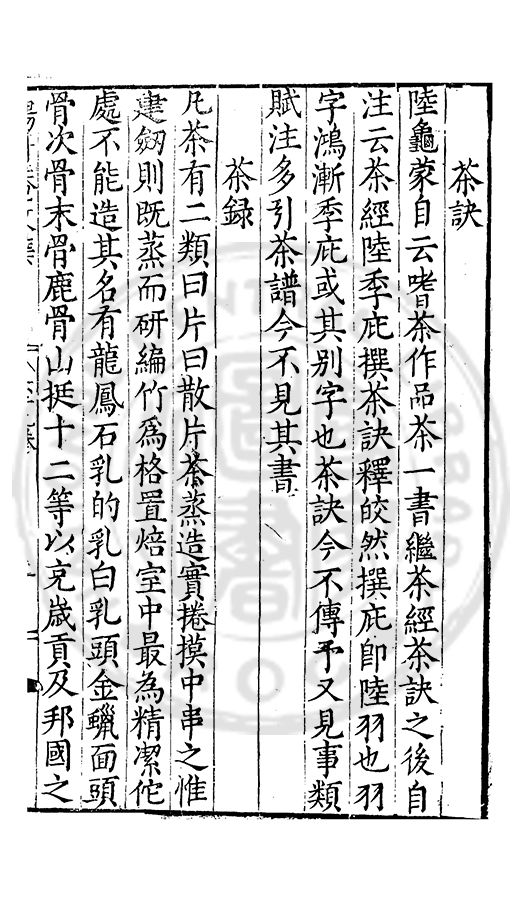 茶訣
陸龜蒙自云嗜茶作品茶一書繼茶經茶訣之後自
注云茶經陸季庛撰茶訣釋皎然撰庛卽陸羽也羽
字鴻漸季庛或其别字也茶訣今不傳予又見事類
賦注多引茶譜今不見其書
茶録
凡茶有二類曰片曰散片茶蒸造實捲摸中串之惟
建劒則既蒸而研編竹爲格置焙室中最為精潔佗
處不能造其名有龍鳳石乳的乳白乳頭金蠟面頭
骨次骨末骨鹿骨山挺十二等以充歲貢及邦國之